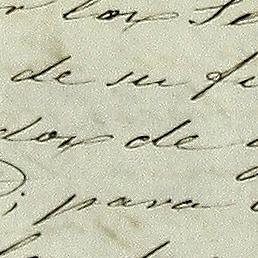 los Se
de su f
dor de
; para